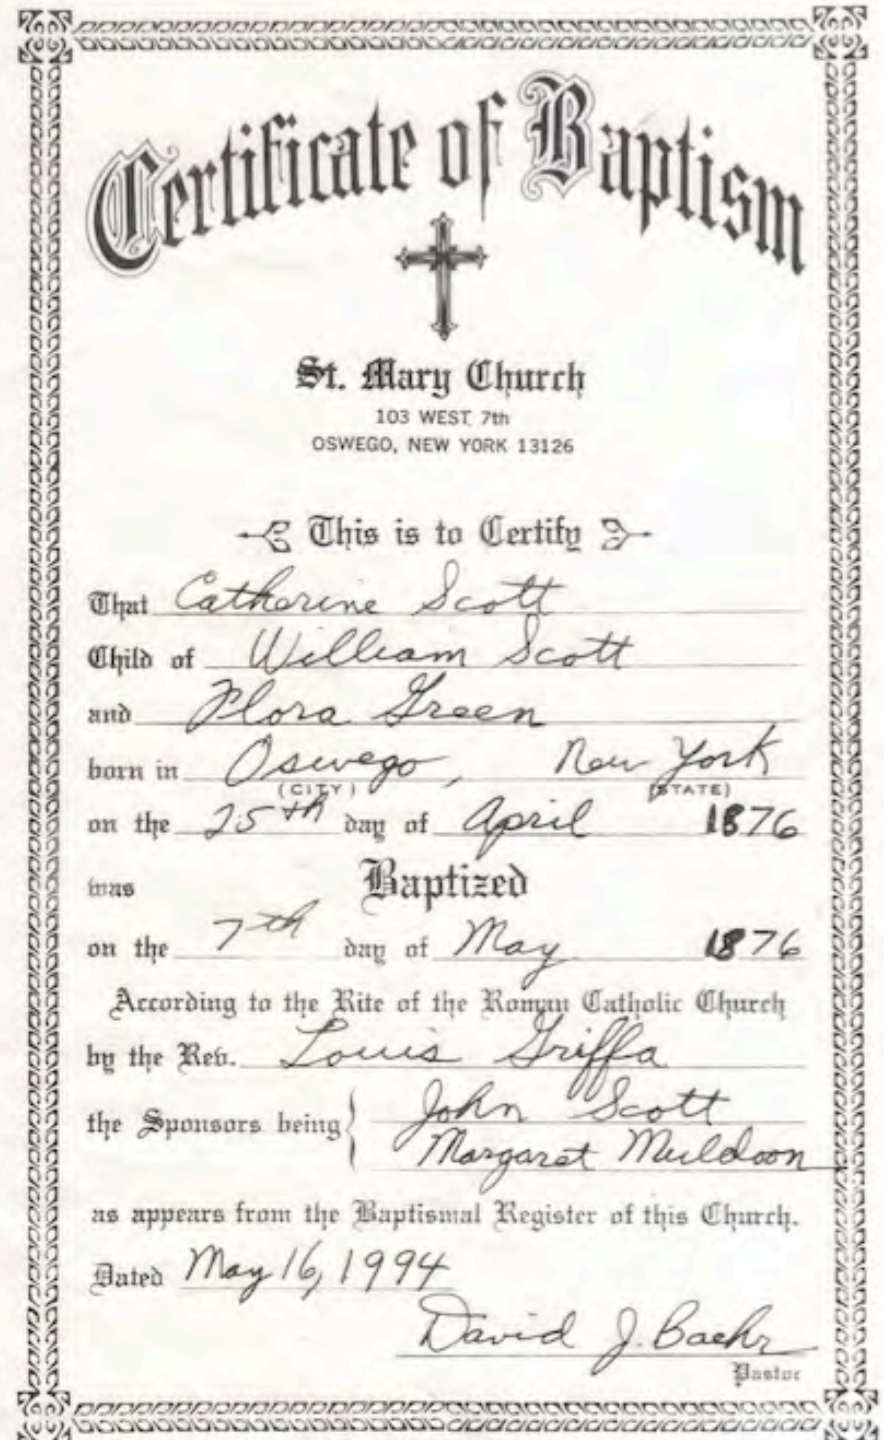 Certificate of Baptism
St. Mary Church
103 WEST 7th
OSWEGO, NEW YORK 13126
This is to Certify
That Catherine Scott
Child of William Scott
and Flora Green
born in Oswego, New York
(CITY) (STATE)
on the 25th day of April 1876
was Baptized
on the 7th day of May 1876
According to the Rite of the Roman Catholic Church
by the Rev. Louis Griffa
the Sponsors being { John Scott
Margaret Muldoon
as appears from the Baptismal Register of this Church.
Dated May 16, 1994
David J. Baehr
Pastor